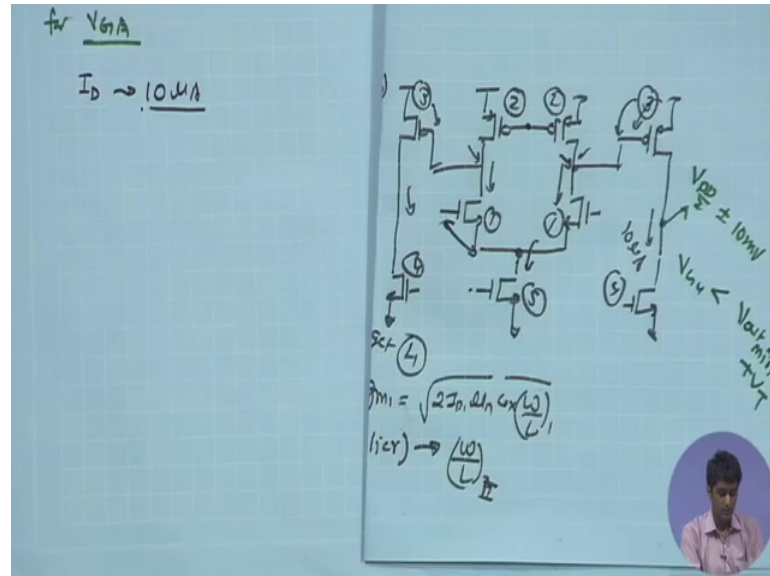 for VGA
ID → 10 μA
3
2
2
3
1
1
4
5
5
10 μA
VDD/2 ± 10mV
VG4 < Vout min + VT
Set 4
gm1 = √2ID1 μn Cox (W/L)1
→ (W/L)2